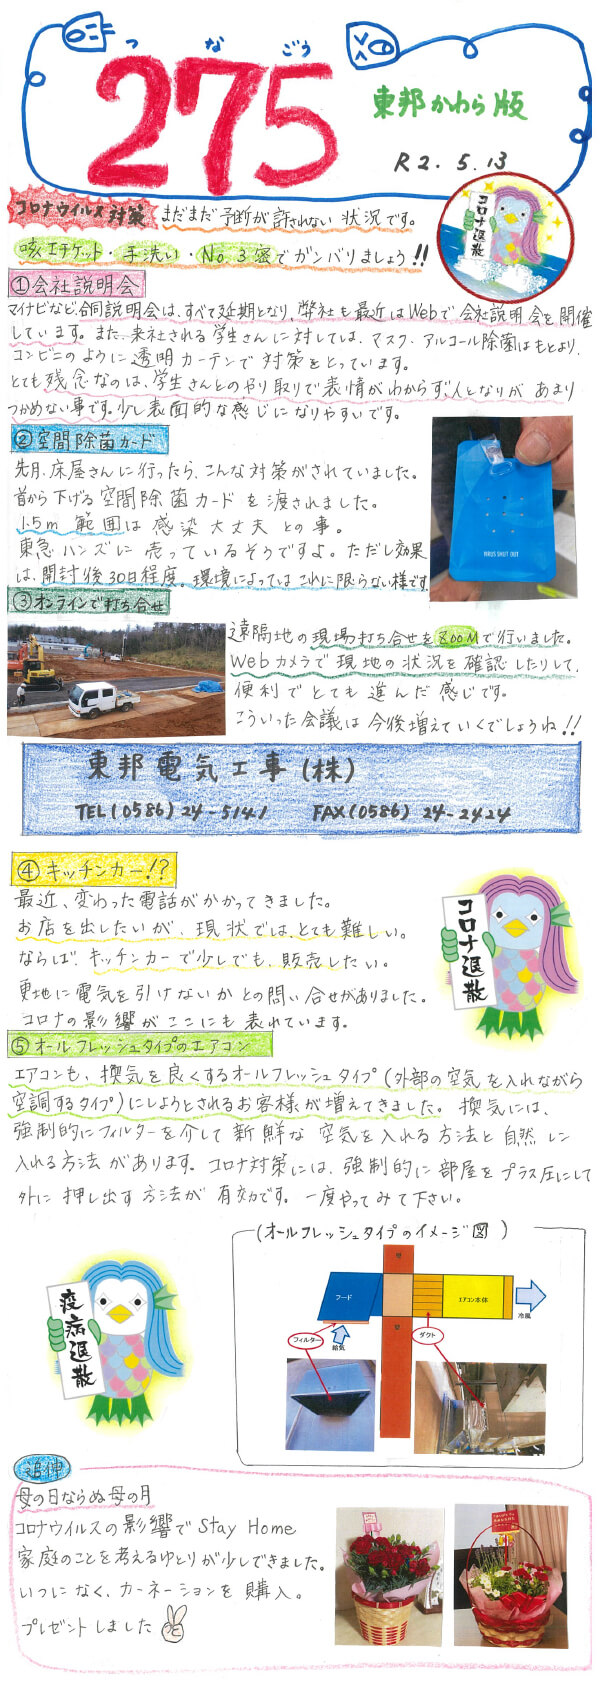 つ な ごう
275
東邦かわら版
R2.5.13
コロナウイルス対策 まだまだ予断が許されない状況です。
コロナ退散
咳エチケット・手洗い・No.3密でガンバリましょう!!
①会社説明会
マイナビなど合同説明会は、すべて延期となり、弊社も最近はWebで会社説明会を開催
しています。また、来社される学生さんに対しては、マスク、アルコール除菌はもとより、
コンビニのように透明カーテンで対策をとっています。
とても残念なのは、学生さんとのやり取りで表情がわからず、人となりがあまり
つかめない事です。少し表面的な感じになりやすいです。
②空間除菌カード
先月、床屋さんに行ったら、こんな対策がされていました。
首から下げる空間除菌カードを渡されました。
1.5m範囲は感染大丈夫との事。
東急ハンズに売っているそうですよ。ただし効果
は、開封後30日程度。環境によってはこれに限らない様です。
VIRUS SHUT OUT
③オンラインで打ち合せ
遠隔地の現場打ち合せをZOOMで行いました。
Webカメラで現地の状況を確認したりして、
便利でとても進んだ感じです。
こういった会議は今後増えていくでしょうね!!
東邦電気工事(株)
TEL(0586)24-5141 FAX(0586)24-2424
④キッチンカー!?
最近、変わった電話がかかってきました。
お店を出したいが、現状では、とても難しい。
ならば、キッチンカーで少しでも、販売したい。
更地に電気を引けないかとの問い合せがありました。
コロナの影響がここにも表れています。
コロナ退散
⑤オールフレッシュタイプのエアコン
エアコンも、換気を良くするオールフレッシュタイプ(外部の空気を入れながら
空調するタイプ)にしようとされるお客様が増えてきました。換気には、
強制的にフィルターを介して新鮮な空気を入れる方法と自然に
入れる方法があります。コロナ対策には、強制的に部屋をプラス圧にして
外に押し出す方法が有効です。一度やってみて下さい。
疫病退散
(オールフレッシュタイプのイメージ図)
壁
フード
エアコン本体
冷風
フィルター
給気
壁
ダクト
追伸
母の日ならぬ母の月
コロナウイルスの影響でStay Home
家庭のことを考えるゆとりが少しできました。
いつになく、カーネーションを購入。
プレゼントしました